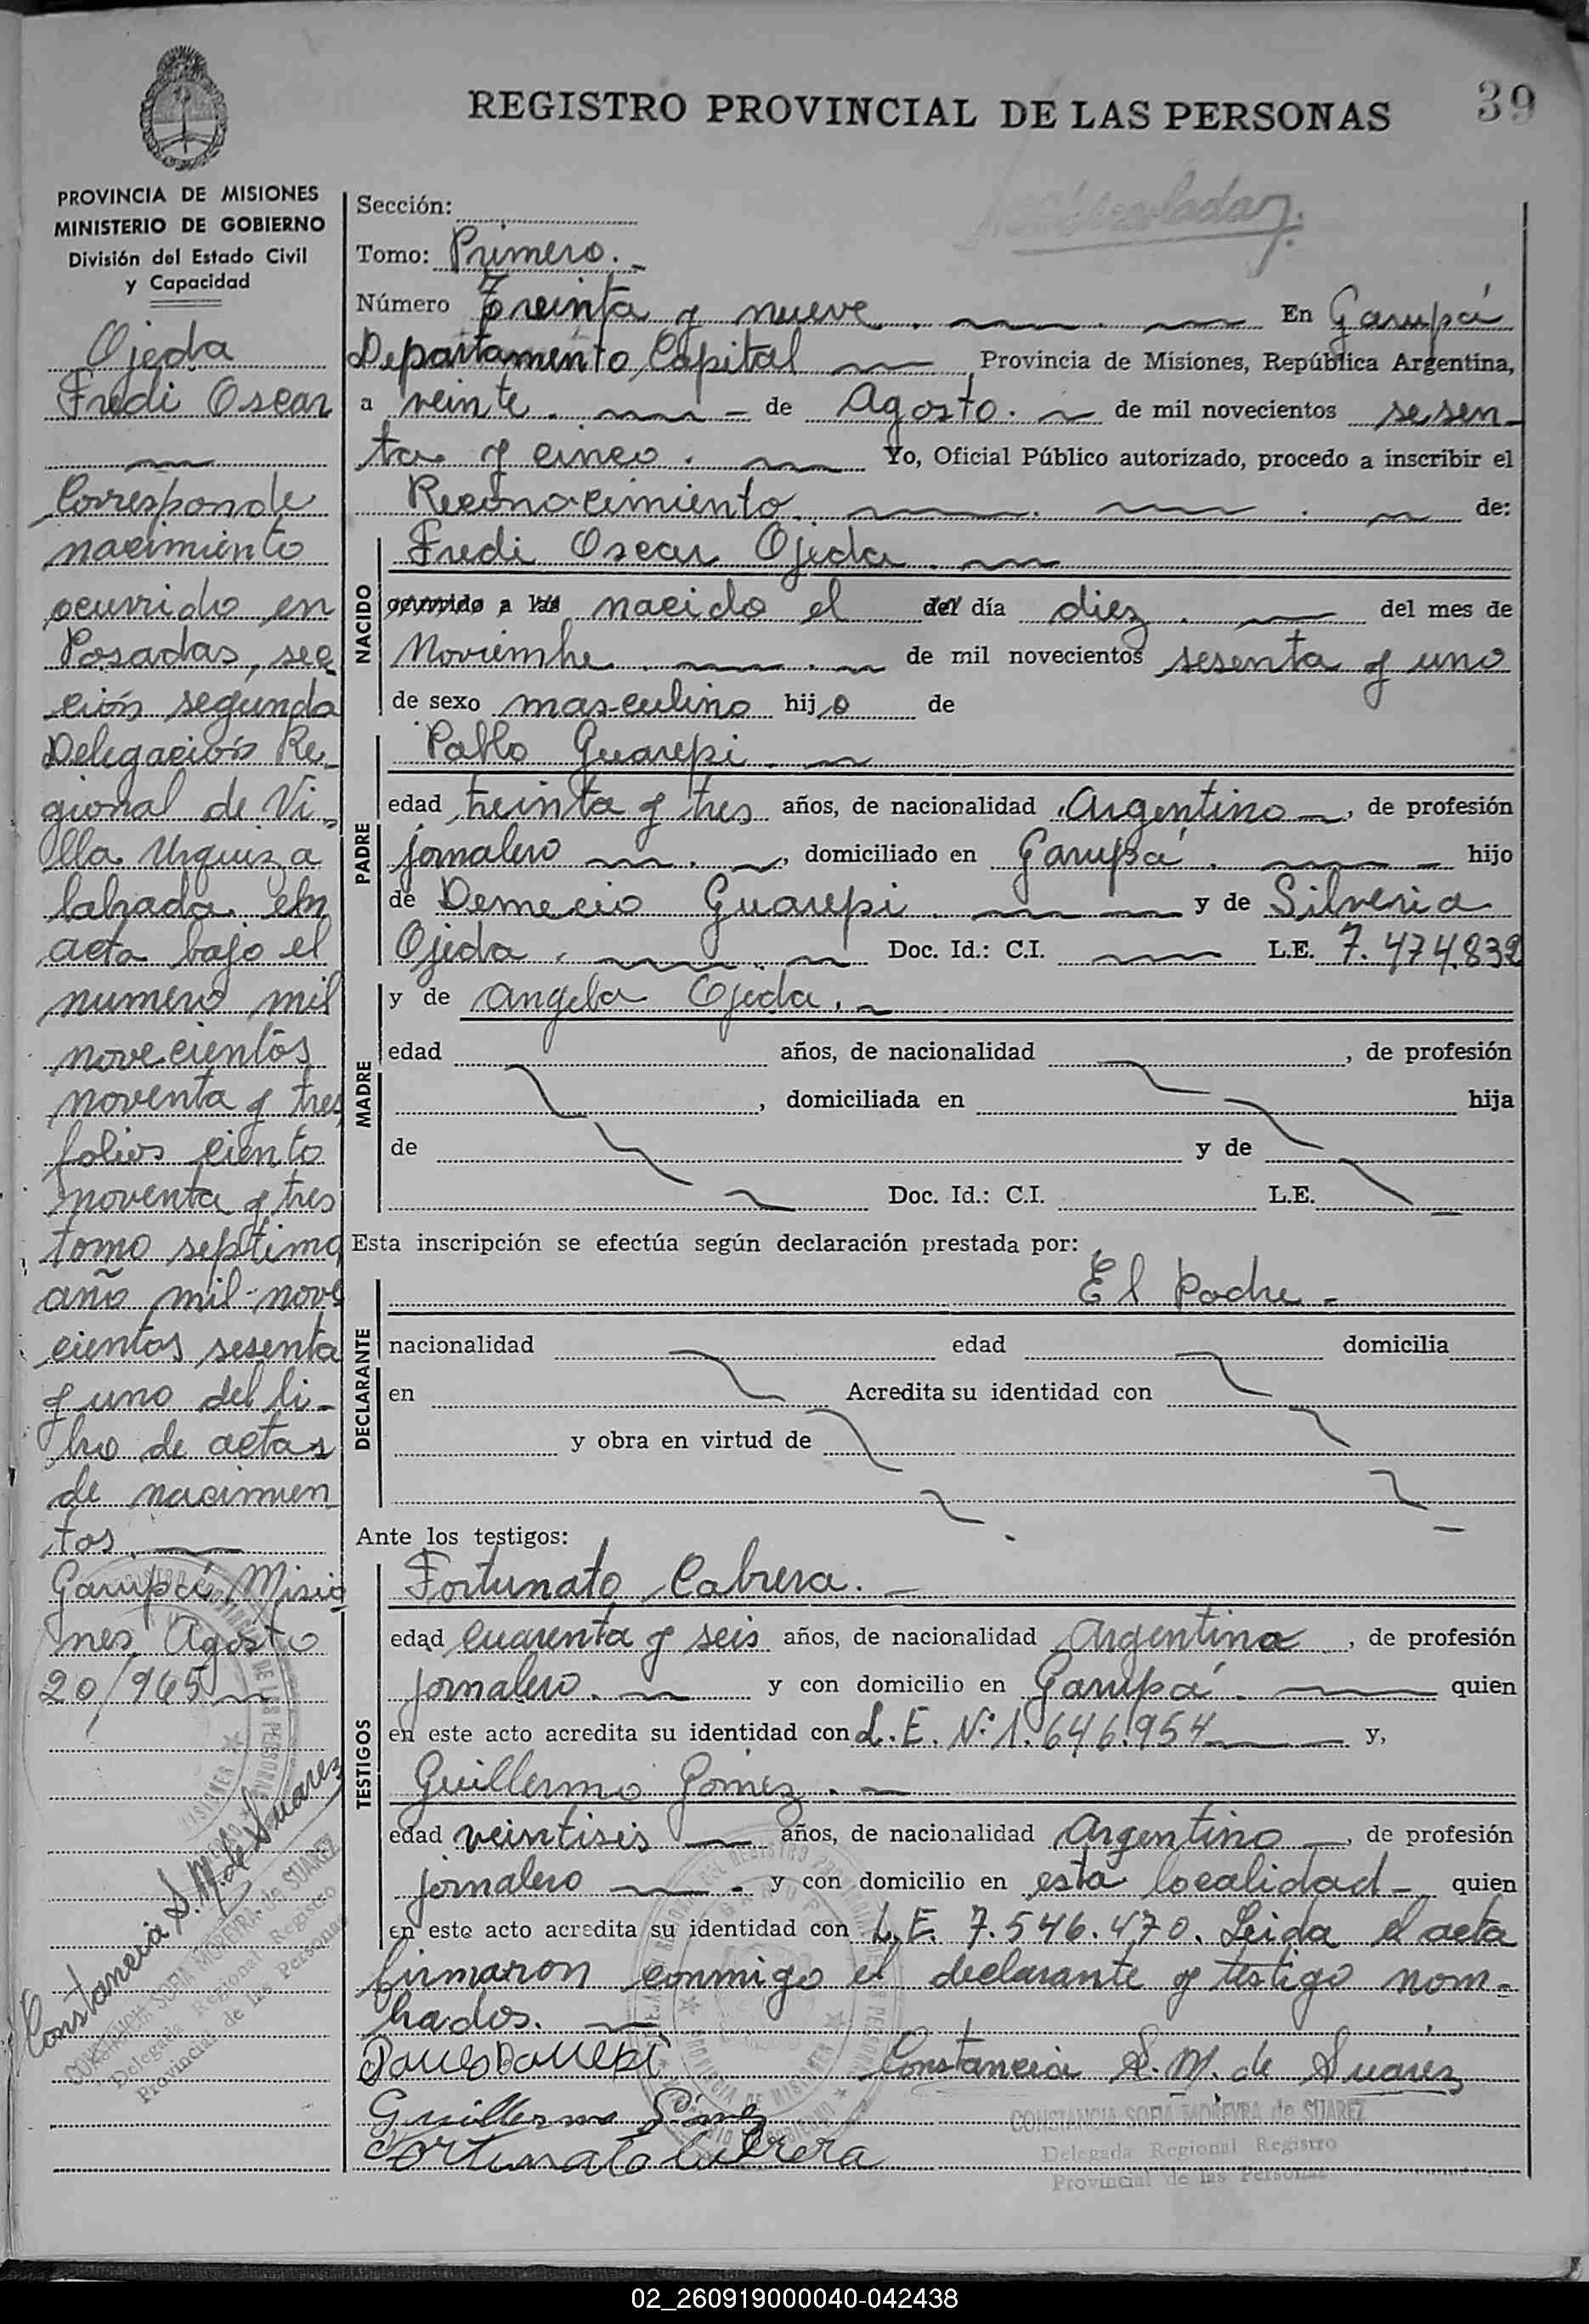 REGISTRO PROVINCIAL DE LAS PERSONAS
39
PROVINCIA DE MISIONES
MINISTERIO DE GOBIERNO
División del Estado Civil
y Capacidad
Ojeda
Fredi Oscar
Corresponde
nacimiento
ocurrido en
Posadas, sec
ción segunda
Delegación Re-
gional de Vi-
lla Urquiza
labrada en
acta bajo el
numero mil
novecientos
noventa y tres
folios ciento
noventa y tres
tomo septimo
año mil nove
cientos sesenta
y uno del li-
bro de actas
de nacimien
tos.
Garupá Misio
nes Agosto
20/965
Constancia S. M. de Suarez
CONSTANCIA SOFIA MOREYRA de SUAREZ
Delegada Regional Registro
Provincial de las Personas
Sección:
Tomo: Primero.
Número Treinta y nueve. En Garupá
Departamento Capital Provincia de Misiones, República Argentina,
a veinte. de Agosto. de mil novecientos sesen-
ta y cinco. Yo, Oficial Público autorizado, procedo a inscribir el
Reconocimiento. de:
NACIDO
Fredi Oscar Ojeda.
ocurrido a las nacido el del día diez. del mes de
Noviembre. de mil novecientos sesenta y uno
de sexo masculino hijo de
PADRE
Pablo Guarepi.
edad treinta y tres años, de nacionalidad Argentino, de profesión
jornalero, domiciliado en Garupá. hijo
de Demecio Guarepi. y de Silveria
Ojeda. Doc. Id.: C.I. L.E. 7.474.832
MADRE
y de Angela Ojeda.
edad años, de nacionalidad , de profesión
, domiciliada en hija
de y de
Doc. Id.: C.I. L.E.
Esta inscripción se efectúa según declaración prestada por:
DECLARANTE
El Padre -
nacionalidad edad domicilia
en Acredita su identidad con
y obra en virtud de
Ante los testigos:
TESTIGOS
Fortunato Cabrera.
edad cuarenta y seis años, de nacionalidad Argentina, de profesión
jornalero. y con domicilio en Garupá. quien
en este acto acredita su identidad con L.E. Nº 1.646.954 y,
Guillermo Gomez.
edad veintiseis años, de nacionalidad Argentino, de profesión
jornalero y con domicilio en esta localidad - quien
en este acto acredita su identidad con L.E. 7.546.470. Leida el acta
firmaron conmigo el declarante y testigo nom-
brados.
Constancia S. M. de Suarez
Guillermo Gomez
Fortunato Cabrera
CONSTANCIA SOFIA MOREYRA de SUAREZ
Delegada Regional Registro
Provincial de las Personas
02_260919000040-042438